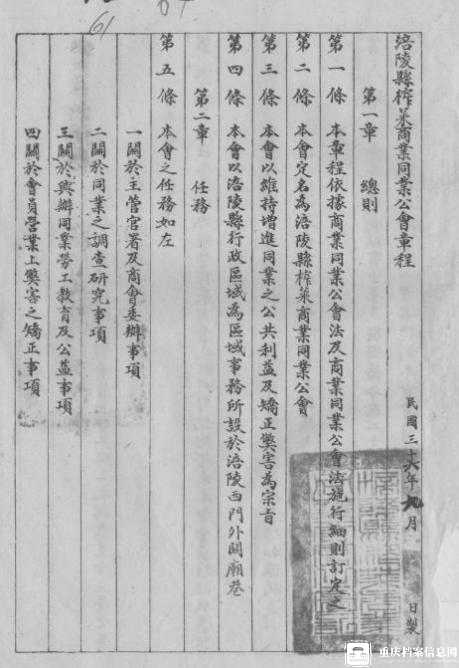 61
涪陵縣榨菜商業同業公會章程
民國三十六年九月 日製
第一章 總則
第一條 本章程依據商業同業公會法及商業同業公會法施行細則訂定之
第二條 本會定名為涪陵縣榨菜商業同業公會
第三條 本會以維持增進同業之公共利益及矯正弊害為宗旨
第四條 本會以涪陵縣行政區域為區域事務所設於涪陵西門外關廟巷
第二章 任務
第五條 本會之任務如左
一關於主管官署及商會委辦事項
二關於同業之調查研究事項
三關於興辦同業勞工教育及公益事項
四關於會員營業上弊害之矯正事項
重庆档案信息网